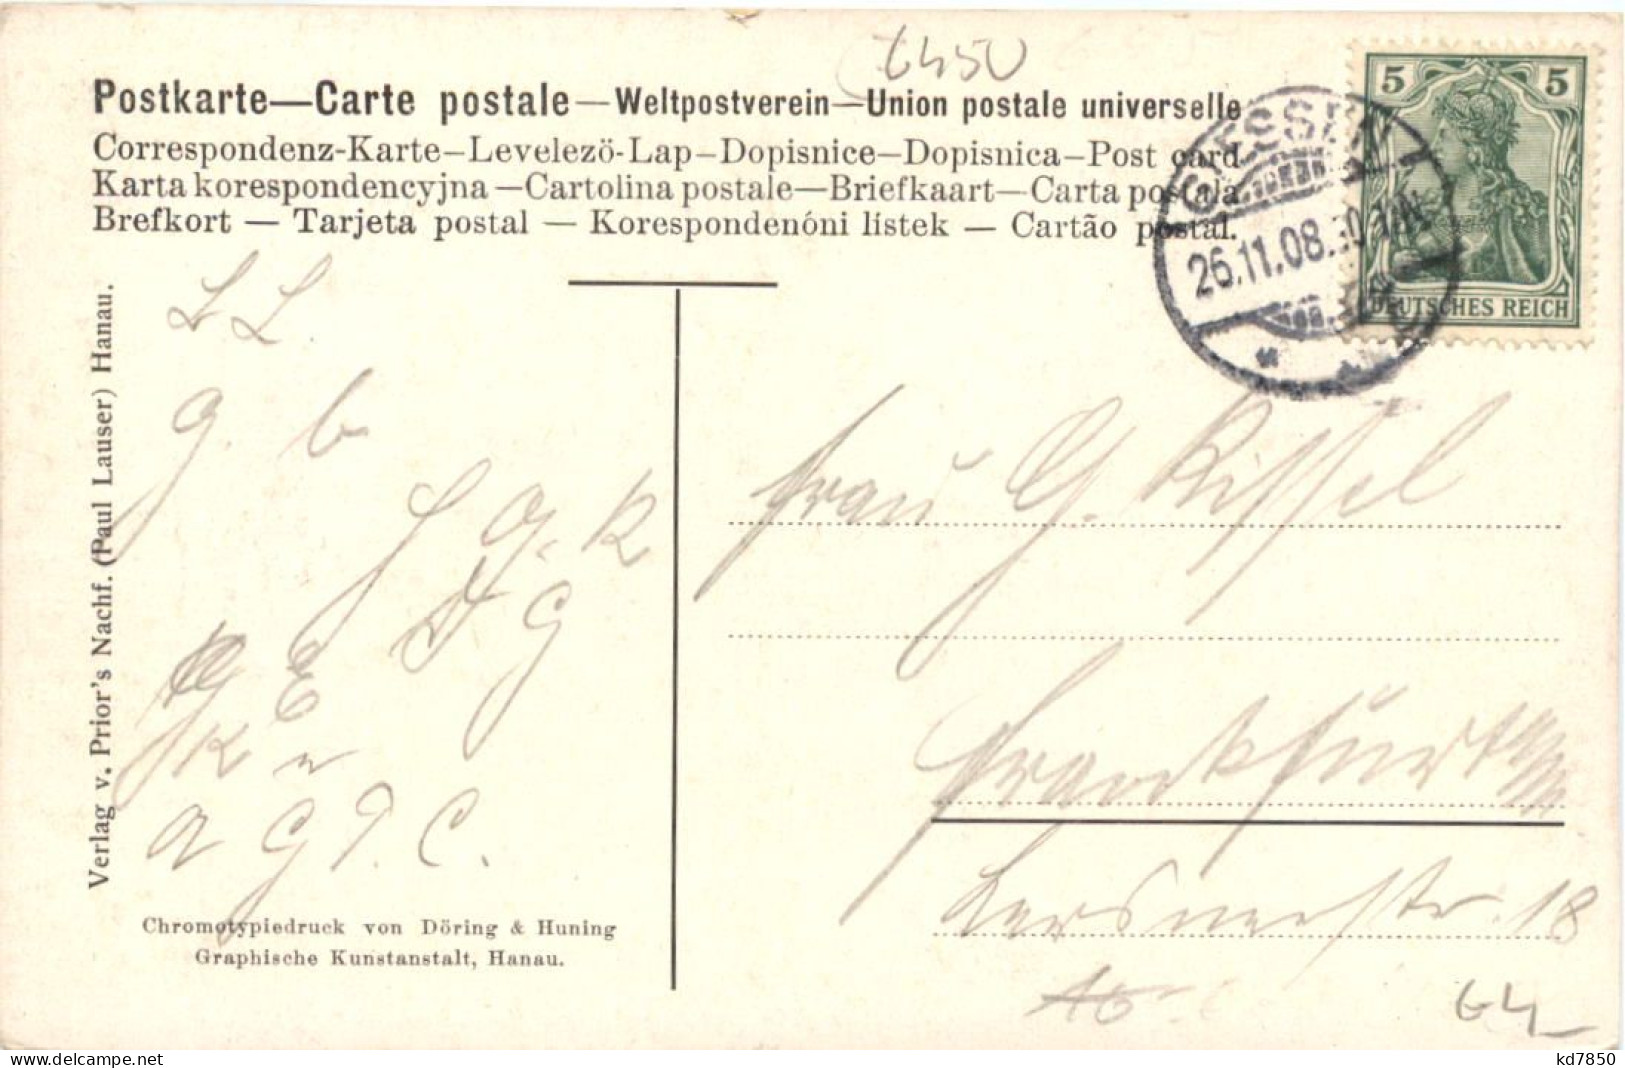 6450
Postkarte—Carte postale—Weltpostverein—Union postale universelle
Correspondenz-Karte—Levelezö-Lap—Dopisnice—Dopisnica—Post card
Karta korespondencyjna—Cartolina postale—Briefkaart—Carta postala
Brefkort — Tarjeta postal — Korespondenóni lístek — Cartão postal.
5 5
DEUTSCHES REICH
GIESSEN
26.11.08.
Verlag v. Prior's Nachf. (Paul Lauser) Hanau.
L L.
g. b
g. k
G
E
K
a G T. C.
Frau G. Kissel
Frankfurt
18
Chromotypiedruck von Döring & Huning
Graphische Kunstanstalt, Hanau.
64
kd7850